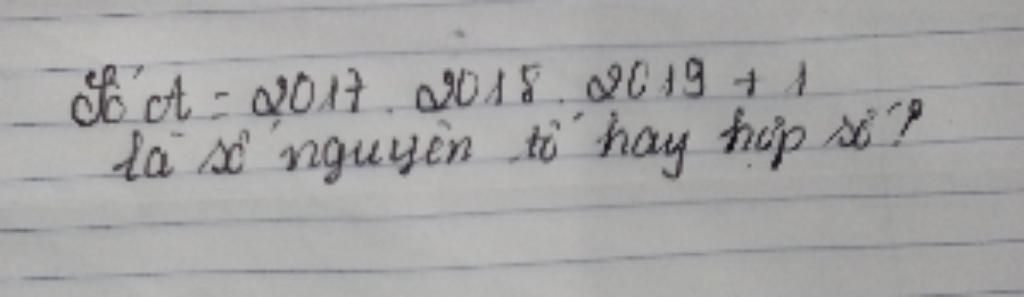 Số A = 2017 . 2018 . 2019 + 1
là số nguyên tố hay hợp số?